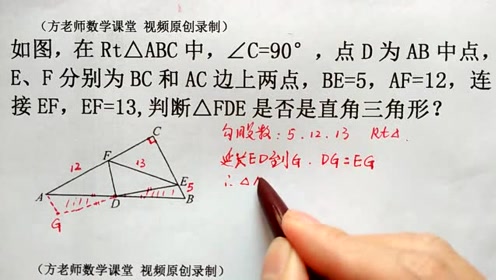 （方老师数学课堂 视频原创录制）
如图，在Rt△ABC中，∠C=90°，点D为AB中点，
E、F分别为BC和AC边上两点，BE=5，AF=12，连
接EF，EF=13,判断△FDE是否是直角三角形？
勾股数：5.12.13 Rt△
延长ED到G．DG=EG
∴△
C
F
12
13
E
5
A
D
B
G
（方老师数学课堂 视频原创录制）